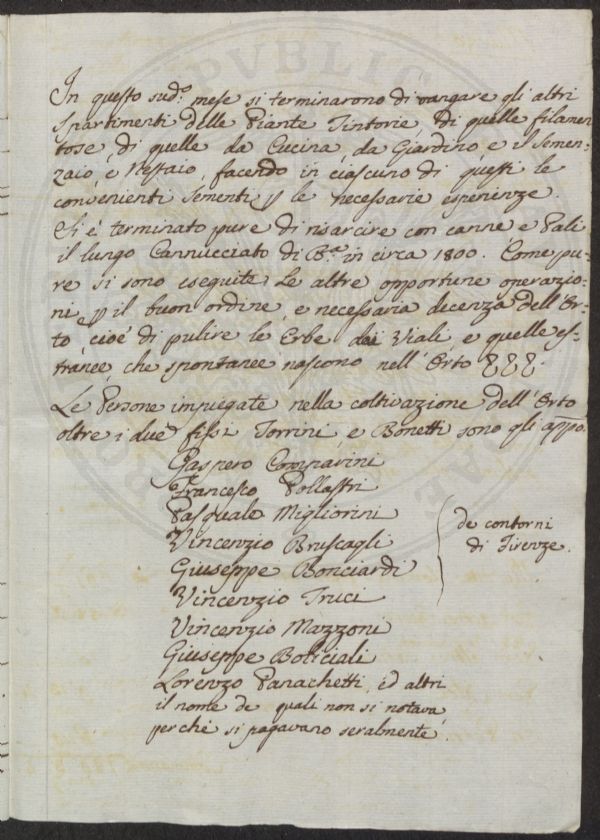 In questo sud.º mese si terminarono di vangare gli altri
Spartimenti delle Piante Tintorie, di quelle filamen
tose, di quelle da Cucina, da Giardino e il Semen-
zaio, e Nestaio, facendo in ciascuno di questi le
convenienti sementi, p le necessarie esperienze.
Si è terminato pure di risarcire con canne e Pali
il lungo Cannucciato di B.ª in circa 1800. Come pu-
re si sono eseguite, Le altre opportune operazio-
ni, p il buon ordine, e necessaria decenza dell'Or-
to, cioè di pulire le Erbe dai Viali, e quelle es-
tranee, che spontanee nascono nell'Orto
Le Persone impiegate nella coltivazione dell'Orto
oltre i due fissi Torrini e Bonetti sono gli appo.
Gaspero Comparini
Francesco Pollastri
Pasquale Migliorini
Vincenzio Bruscagli
Giuseppe Bonciardi
Vincenzio Fruci
Vincenzio Mazzoni
Giuseppe Boliciali
Lorenzo Panachetti, ed altri
il nome de quali non si notava
perchè si pagavano seralmente
de contorni
di Firenze.
PVBLIC